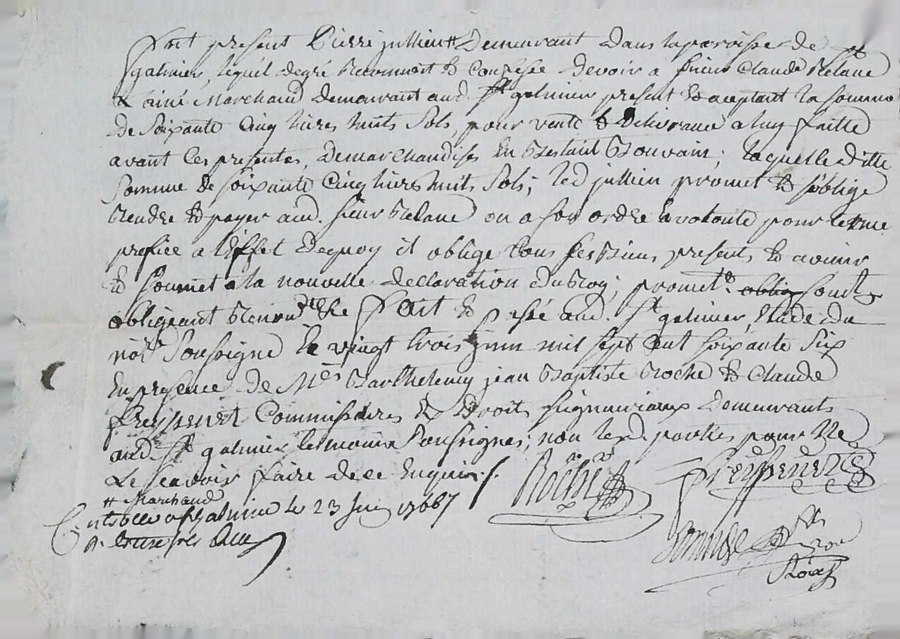 fut present Pierre jullien # Demeurant Dans la paroisse de St
galmier, lequel degré Reconnoit & confesse devoir a sieur Claude
ainé Marchand demeurant aud. St galmier present & aceptant la somme
de soixante Cinq livres huits sols, pour vente & Delivrance a luy faitte
avant ces presentes, de marchandises En ; laquelle ditte
somme de soixante Cinq livres huits sols; led jullien promet & s'oblige
Rendre & payer aud. sieur ou a son ordre a volonté pour terme
prefice a l'effet dequoy il oblige tous ses biens presents & avenir
& soumet a la nouvelle declaration du Roy; promett. oblig soum.
obligeant Renonc. &c fait & passé aud. St galmier, Etude du
nore. soussigné le vingt trois juin mil sept cent soixante six
En presence de Mes Barthelemy jean Baptiste Roche & Claude
freyssenet Commissaires & Droits seigneuriaux Demeurants
aud. St galmier les temoins soussignes; non led. parties pour ne
Le sçavoir faire de ce Enquis /.
# Marchand
Roche freyssenet
Controllé a St galmier le 23 juin 1766
R.